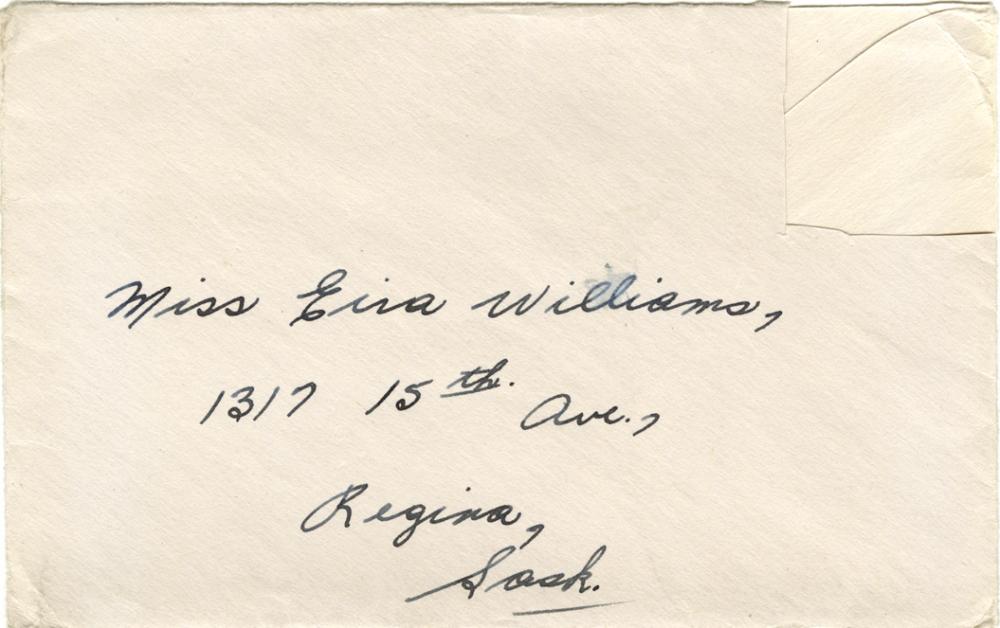 Miss Eira Williams,
1317 15th. Ave.,
Regina,
Sask.